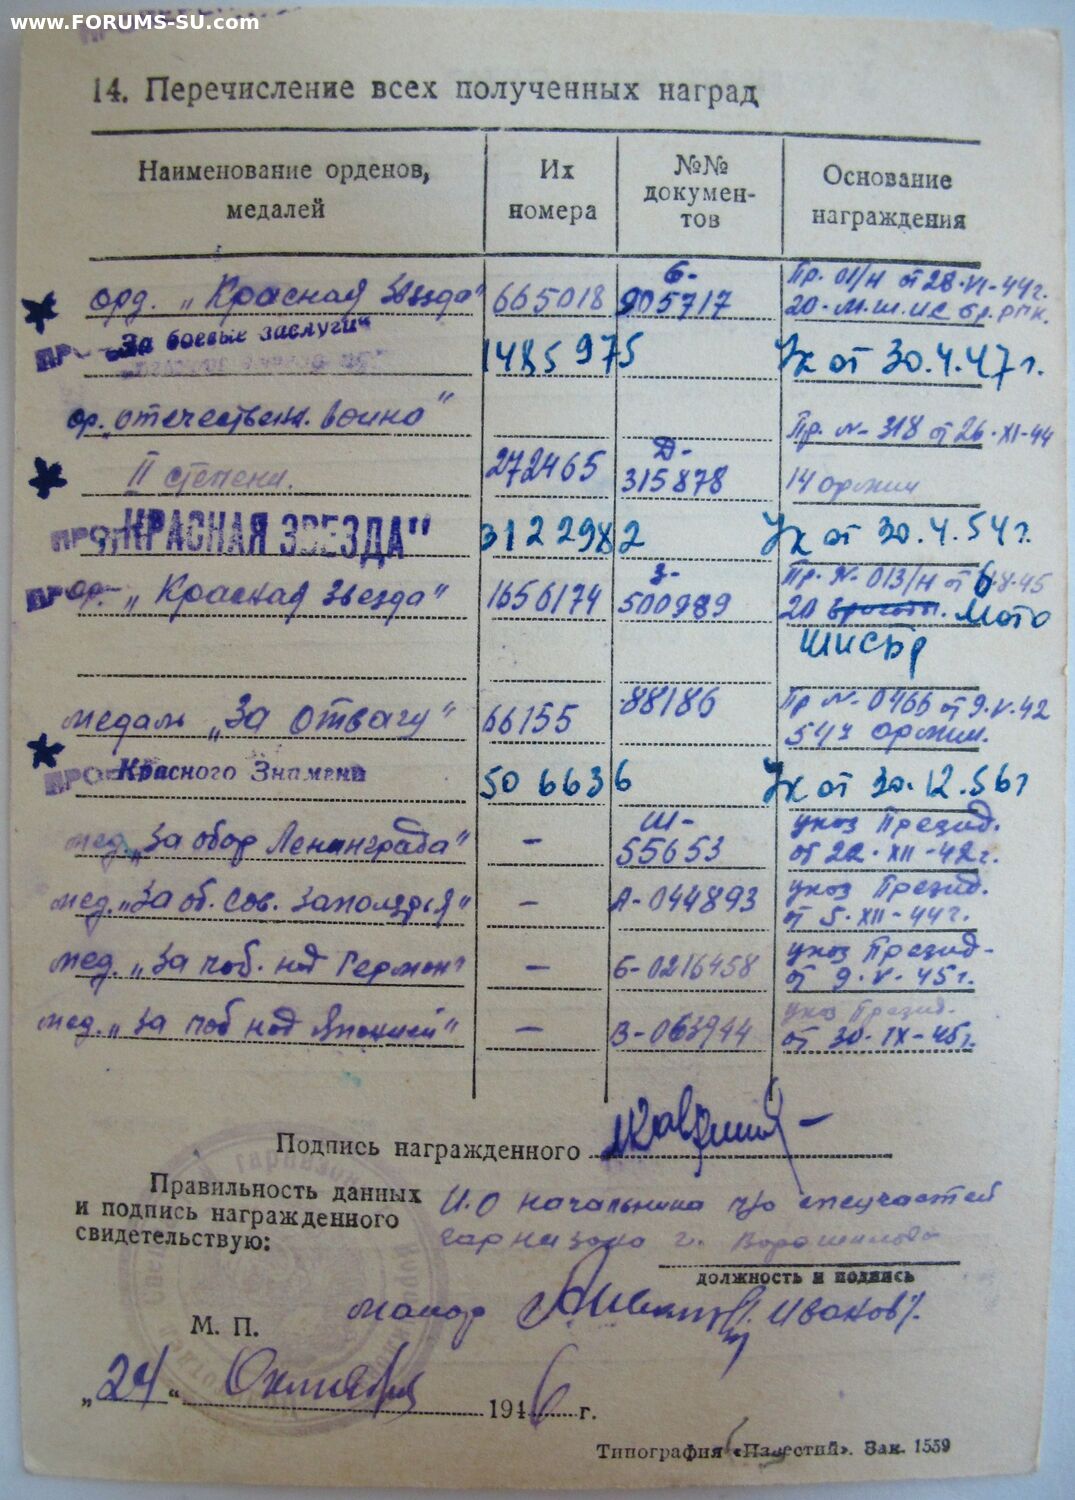 www.FORUMS-SU.com
14. Перечисление всех полученных наград
Наименование орденов, медалей
Их номера
№№ документов
Основание награждения
орд. „Красная Звезда" 665018 Б-905717 Пр. 011/н от 28·VI-44г.
20-м.ш.ис бр. РГК.
„За боевые заслуги" 1485975 Ук от 30.4.47г.
ор. „отечествен. война" Пр. N- 318 от 26·XI-44
II степени. 272465 Д-315878 14 армии
"КРАСНАЯ ЗВЕЗДА" 3122982 Ук от 30.4.54г.
ор. „Красная Звезда" 1656174 З-500989 Пр. N- 013/н от 6·8-45
20 мото
шисбр
медаль „За отвагу" 66155 88186 Пр N- 0466 от 9·V-42
54й армии.
Красного Знамени 506636 Ук от 30.12.56г
мед. „За обор Ленинграда" - Ш-55653 указ Презид.
от 22·XII-42г.
мед. „За об. Сов. Заполярья" - А-044893 указ Презид.
от 5·XII-44г.
мед. „За поб. над Герман" - Б-0216458 указ Презид-
от 9·V-45г.
мед. „За поб над Японией" - В-063944 указ Презид.
от 30·IX-45г.
Подпись награжденного
Правильность данных
и подпись награжденного
свидетельствую:
И.О начальника п/о спецчастей
гарнизона г. Ворошилова
должность и подпись
майор Иванов/.
М. П.
„24" Октября 1946 г.
Типография «Известий». Зак. 1559